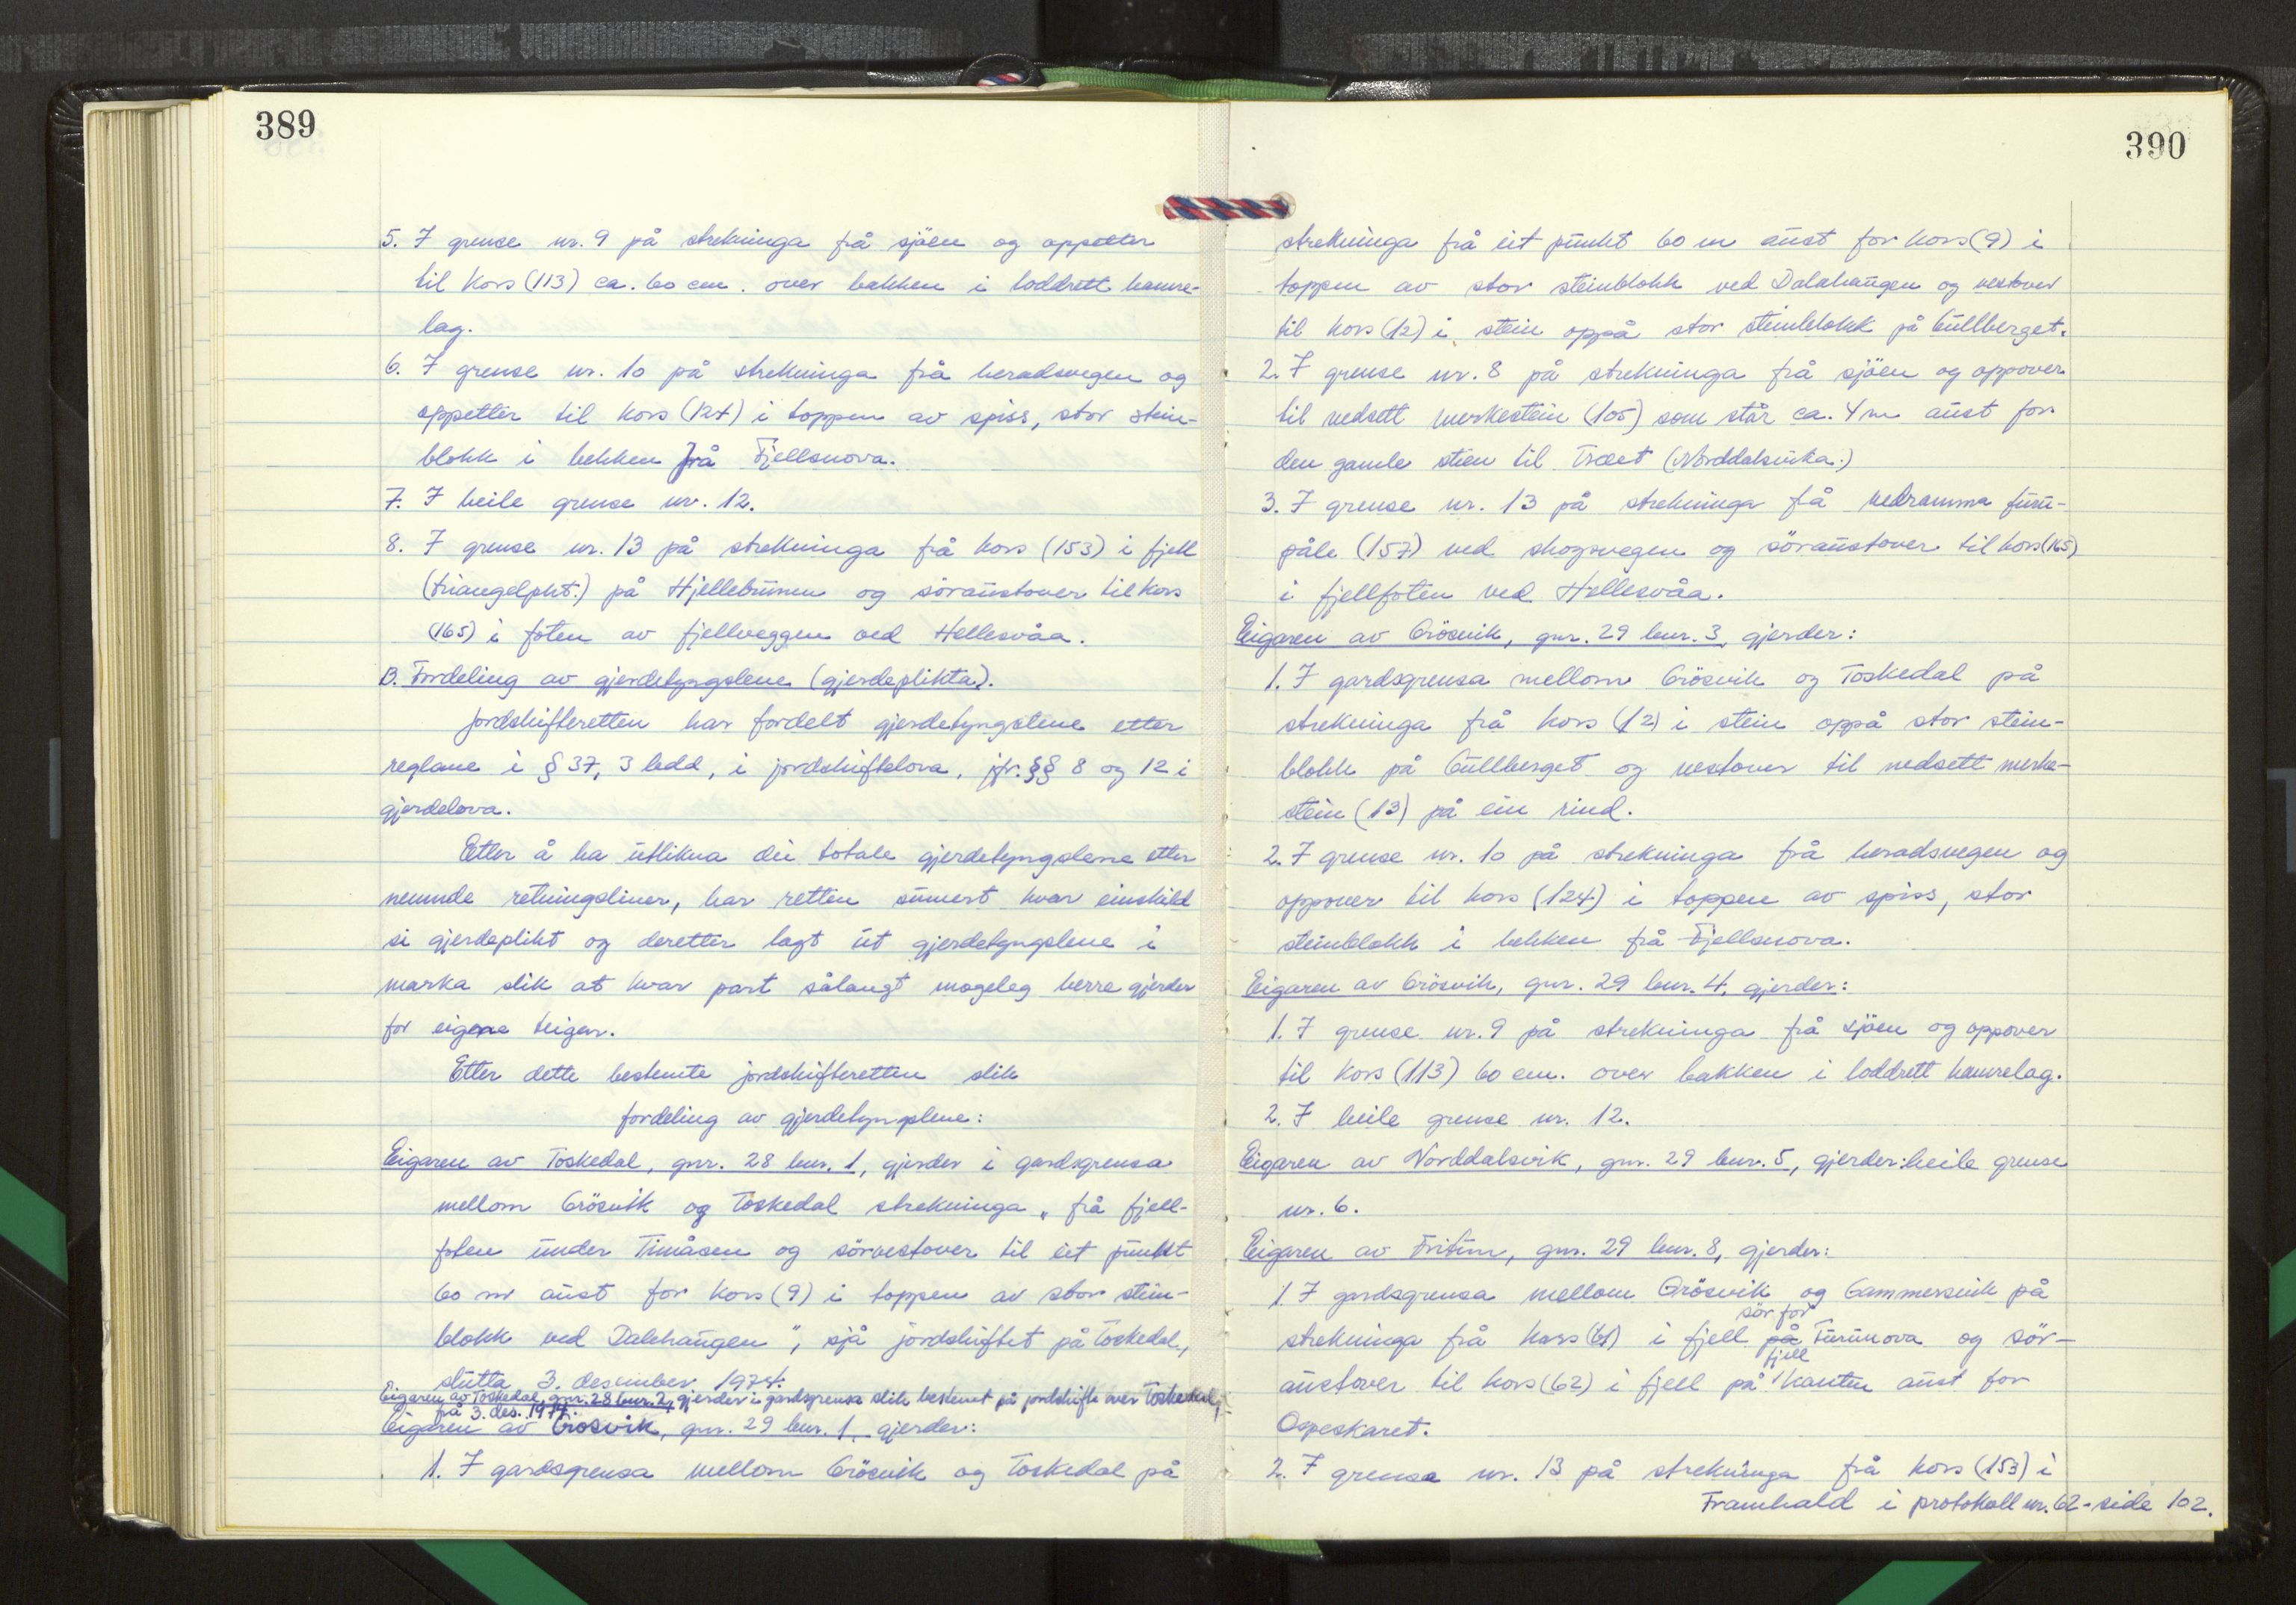 389
5. I grense nr. 9 på strekninga frå sjöen og oppetter
til kors (113) ca. 60 cm. over bakken i loddrett hamre-
lag.
6. I grense nr. 10 på strekninga frå heradsvegen og
oppetter til kors (124) i toppen av spiss, stor stein-
blokk i bekken frå Fjellsnova.
7. I heile grense nr. 12.
8. I grense nr. 13 på strekninga frå kors (153) i fjell
(triangelpkt.) på Hjellebrunen og söraustover til kors
(165) i foten av fjellveggen ved Hellesvåa.
B. Fordeling av gjerdetyngslene (gjerdeplikta).
Jordskifteretten har fordelt gjerdetyngslene etter
reglane i § 37, 3 ledd, i jordskiftelova, jfr. §§ 8 og 12 i
gjerdelova.
Etter å ha utlikna dei totale gjerdetyngslene etter
nemnde retningsliner, har retten sumert kvar einskild
si gjerdeplikt og deretter lagt ut gjerdetyngslene i
marka slik at kvar part sålangt mogeleg berre gjerder
for eigene teigar.
Etter dette bestemte jordskifteretten slik
fordeling av gjerdetyngslene:
Eigaren av Toskedal, gnr. 28 bnr. 1, gjerder i gardsgrensa
mellom Grösvik og Toskedal strekninga „ frå fjell-
foten under Timåsen og sörvestover til eit punkt
60 m aust for kors (9) i toppen av stor stein-
blokk ved Dalehaugen ", sjå jordskiftet på Toskedal,
slutta 3. desember 1974.
Eigaren av Toskedal, gnr. 28 bnr. 2, gjerder i gardsgrensa slik bestemt på jordskifte over Toskedal,
frå 3. des. 1974.
Eigaren av Grösvik, gnr. 29 bnr. 1, gjerder:
1. I gardsgrensa mellom Grösvik og Toskedal på
390
strekninga frå eit punkt 60 m aust for kors (9) i
toppen av stor steinblokk ved Dalahaugen og vestover
til kors (12) i stein oppå stor steinblokk på Gullberget.
2. I grense nr. 8 på strekninga frå sjöen og oppover
til nedsett merkestein (105) som står ca. 4 m aust for
den gamle stien til Træet (Norddalsvika.)
3. I grense nr. 13 på strekninga få nedramma furu-
påle (157) ved skogsvegen og söraustover til kors (165)
i fjellfoten ved Hellesvåa.
Eigaren av Grösvik, gnr. 29 bnr. 3, gjerder:
1. I gardsgrensa mellom Grösvik og Toskedal på
strekninga frå kors (12) i stein oppå stor stein-
blokk på Gullberget og vestover til nedsett merke-
stein (13) på ein rind.
2. I grense nr. 10 på strekninga frå heradsvegen og
oppover til kors (124) i toppen av spiss, stor
steinblokk i bekken frå Fjellsnova.
Eigaren av Grösvik, gnr. 29 bnr. 4, gjerder:
1. I grense nr. 9 på strekninga frå sjöen og oppover
til kors (113) 60 cm. over bakken i loddrett hamrelag.
2. I heile grense nr. 12.
Eigaren av Norddalsvik, gnr. 29 bnr. 5, gjerder: heile grense
nr. 6.
Eigaren av Fritun, gnr. 29 bnr. 8, gjerder:
1. I gardsgrensa mellom Grösvik og Gammersvik på
sör for
strekninga frå kors (61) i fjell på Furunova og sör-
fjell
austover til kors (62) i fjell på kanten aust for
Ospeskaret.
2. I grensa nr. 13 på strekninga frå kors (153) i
Framhald i protokoll nr. 62 - side 102.